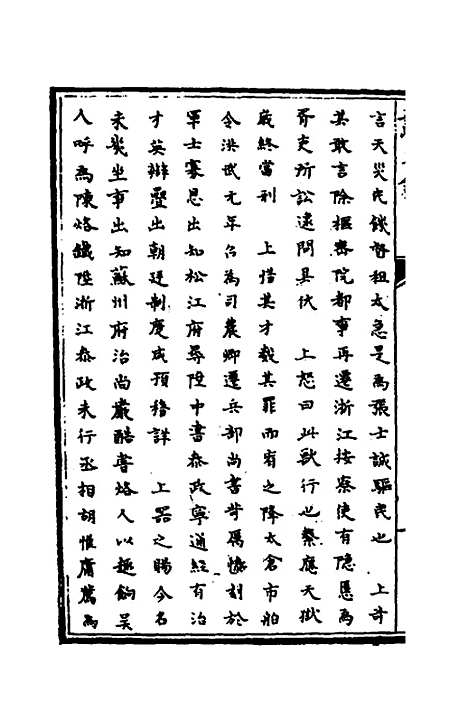 言天災民饑督租太急是為張士誠驅民也　上奇
其敢言除樞密院都事再遷浙江按察使有隱慝為
胥吏所訟逮問具伏　上怒曰此獸行也繫應天獄
歲終當刑　上惜其才數其罪而宥之降太倉市舶
令洪武元年召為司農卿遷兵部尚書苛厲慘刻於
軍士寡恩出知松江府尋陞中書參政寧通經有治
才英辯豎出朝廷制度咸預稽詳　上器之賜今名
未幾坐事出知蘇州府治尚嚴酷嘗烙人以趣餉吳
人呼為陳烙鐵陞浙江參政未行丞相胡惟庸薦為